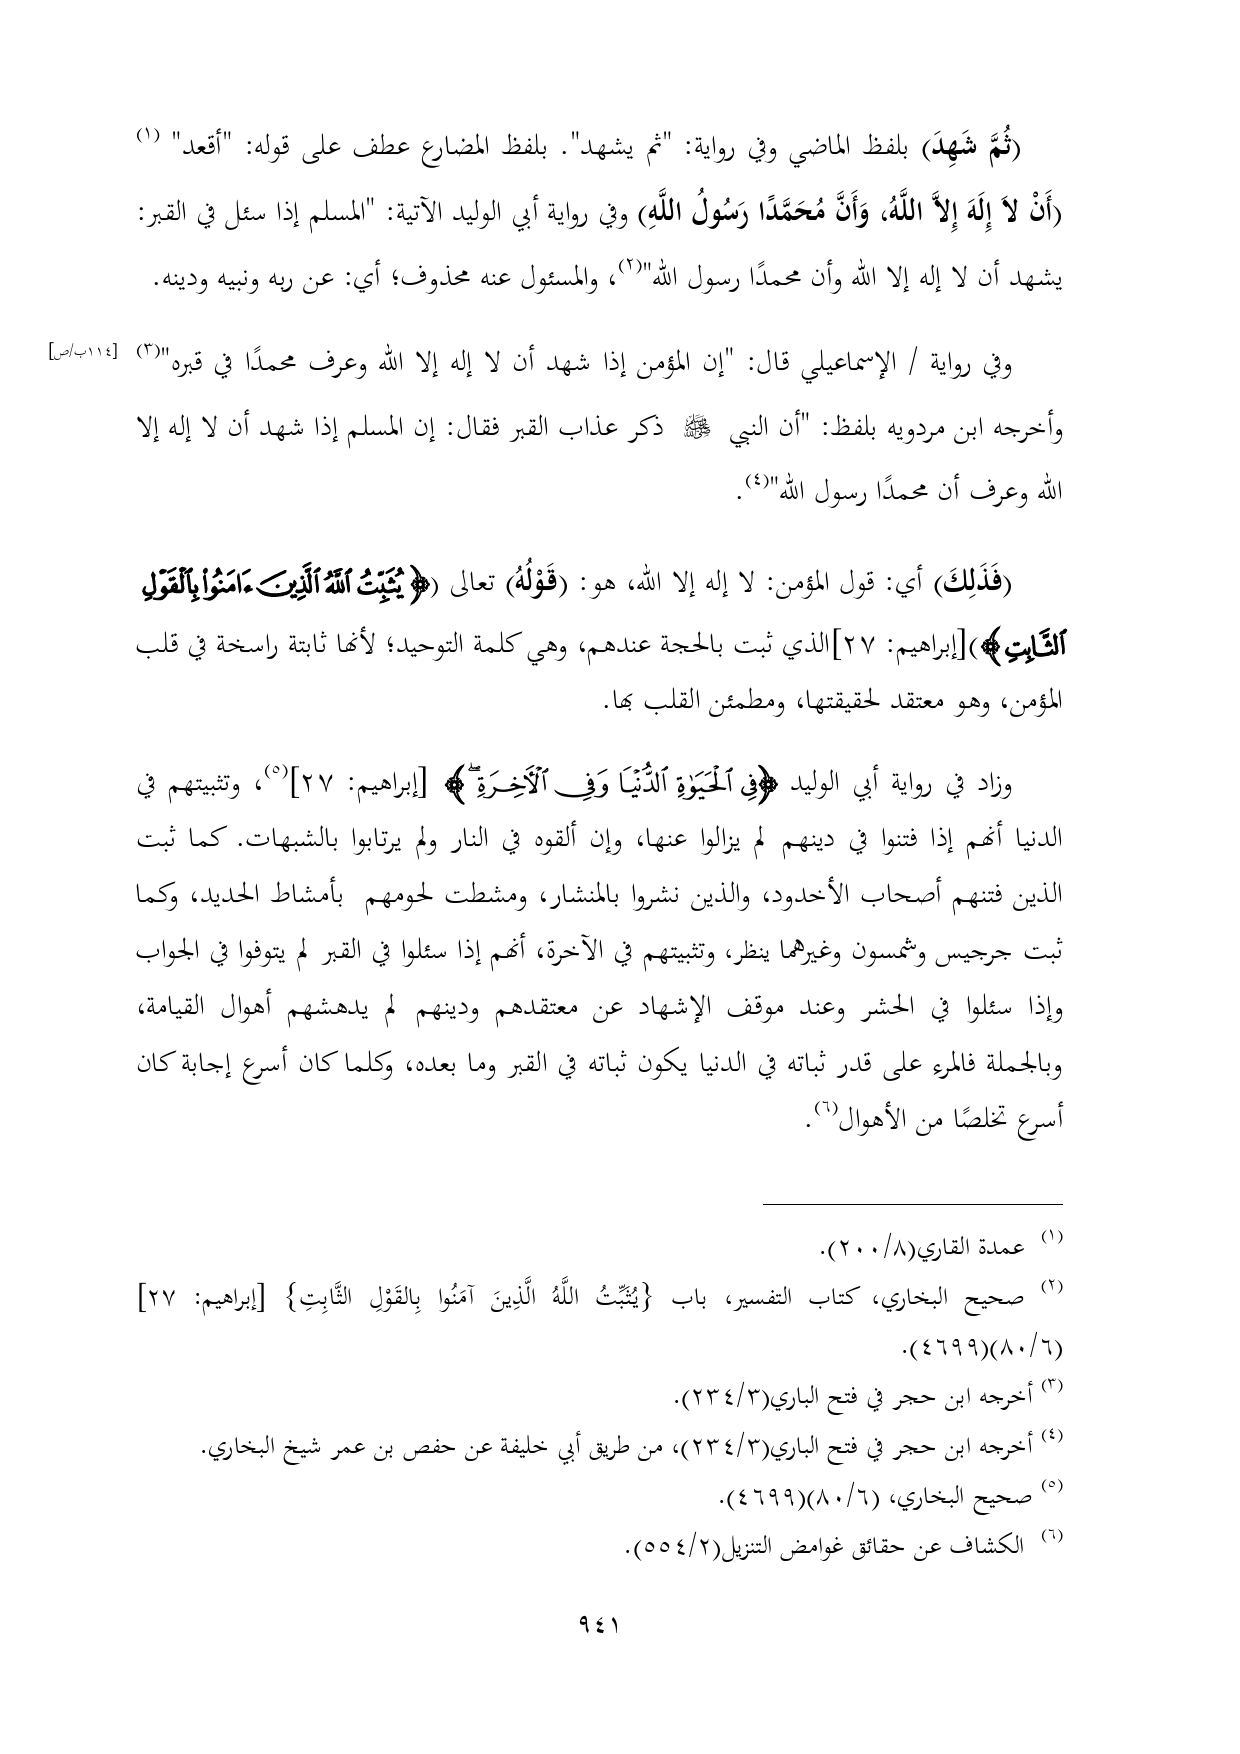 (ثُمَّ شَهِدَ) بلفظ الماضي وفي رواية: "ثم يشهد". بلفظ المضارع عطف على قوله: "أقعد" (١)
(أَنْ لاَ إِلَهَ إِلاَّ اللَّهُ، وَأَنَّ مُحَمَّدًا رَسُولُ اللَّهِ) وفي رواية أبي الوليد الآتية: "المسلم إذا سئل في القبر:
يشهد أن لا إله إلا الله وأن محمدًا رسول الله"(٢)، والمسئول عنه محذوف؛ أي: عن ربه ونبيه ودينه.
وفي رواية / الإسماعيلي قال: "إن المؤمن إذا شهد أن لا إله إلا الله وعرف محمدًا في قبره"(٣) [١١٤ب/ص]
وأخرجه ابن مردويه بلفظ: "أن النبي ﷺ ذكر عذاب القبر فقال: إن المسلم إذا شهد أن لا إله إلا
الله وعرف أن محمدًا رسول الله"(٤).
(فَذَلِكَ) أي: قول المؤمن: لا إله إلا الله، هو: (قَوْلُهُ) تعالى (﴿ يُثَبِّتُ ٱللَّهُ ٱلَّذِينَ ءَامَنُوا۟ بِٱلْقَوْلِ
ٱلثَّابِتِ ﴾)[إبراهيم: ٢٧]الذي ثبت بالحجة عندهم، وهي كلمة التوحيد؛ لأنها ثابتة راسخة في قلب
المؤمن، وهو معتقد لحقيقتها، ومطمئن القلب بها.
وزاد في رواية أبي الوليد ﴿فِى ٱلْحَيَوٰةِ ٱلدُّنْيَا وَفِى ٱلْأَخِرَةِ ۖ ﴾ [إبراهيم: ٢٧](٥)، وتثبيتهم في
الدنيا أنهم إذا فتنوا في دينهم لم يزالوا عنها، وإن ألقوه في النار ولم يرتابوا بالشبهات. كما ثبت
الذين فتنهم أصحاب الأخدود، والذين نشروا بالمنشار، ومشطت لحومهم بأمشاط الحديد، وكما
ثبت جرجيس وشمسون وغيرهما ينظر، وتثبيتهم في الآخرة، أنهم إذا سئلوا في القبر لم يتوفوا في الجواب
وإذا سئلوا في الحشر وعند موقف الإشهاد عن معتقدهم ودينهم لم يدهشهم أهوال القيامة،
وبالجملة فالمرء على قدر ثباته في الدنيا يكون ثباته في القبر وما بعده، وكلما كان أسرع إجابة كان
أسرع تخلصًا من الأهوال(٦).
(١) عمدة القاري(٢٠٠/٨).
(٢) صحيح البخاري، كتاب التفسير، باب {يُثَبِّتُ اللَّهُ الَّذِينَ آمَنُوا بِالقَوْلِ الثَّابِتِ} [إبراهيم: ٢٧]
(٨٠/٦)(٤٦٩٩).
(٣) أخرجه ابن حجر في فتح الباري(٢٣٤/٣).
(٤) أخرجه ابن حجر في فتح الباري(٢٣٤/٣)، من طريق أبي خليفة عن حفص بن عمر شيخ البخاري.
(٥) صحيح البخاري، (٨٠/٦)(٤٦٩٩).
(٦) الكشاف عن حقائق غوامض التنزيل(٥٥٤/٢).
٩٤١